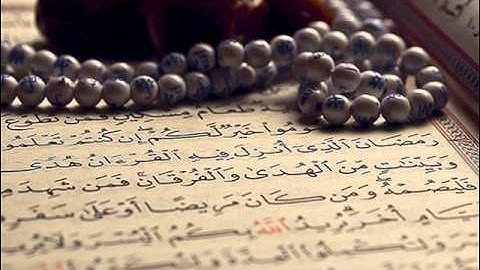 طَعَامُ مِسْكِينٍ فَمَن تَطَوَّعَ
ومُوا خَيْرٌ لَّكُمْ إِن كُنتُمْ تَعْلَمُو
رَمَضَانَ الَّذِي أُنزِلَ فِيهِ الْقُرْءَانُ هُدًى
وَبَيِّنَتٍ مِّنَ الْهُدَى وَالْفُرْقَانِ فَمَن شَهِدَ مِ
فَلْيَصُمْهُ وَمَن كَانَ مَرِيضًا أَوْ عَلَى سَفَرٍ
يَّامٍ أُخَرَ يُرِيدُ اللَّهُ بِكُمُ الْيُسْرَ وَلَا يُرِيدُ
وَلِتُكْمِلُوا الْعِدَّةَ